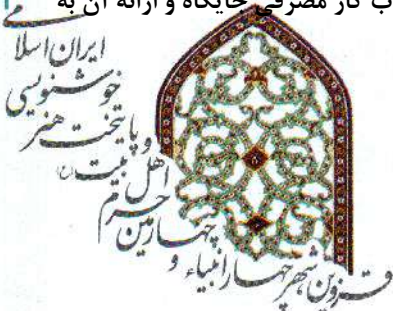 ب گاز مصرفی جایگاه و ارائه آن به
قزوین شهر چهار انبیاء و
چهارمین حرم
اهل بیت (ع)
و پایتخت هنر
خوشنویسی
ایران اسلامی